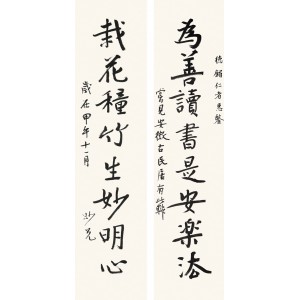 仁者惠鑒
為善讀書是安樂法
嘗見安徽古民居有此聯
栽花種竹生妙明心
歲在甲午十一月